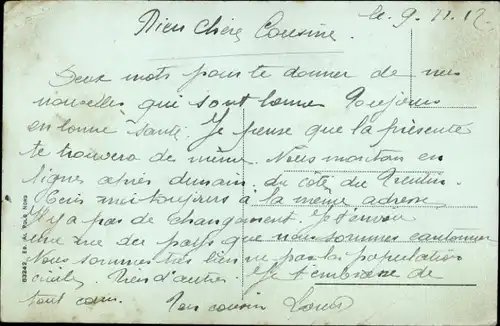 le 9. 11. 17.
Bien Chère Cousine.
Deux mots pour te donner de mes
nouvelles qui sont bonnes toujours
en bonne santé. Je pense que la présente
te trouvera de même. Nous montons en
lignes après demain, du côté du Trentin.
Ecris moi toujours à la même adresse
Il y a pas de changement. Je t'envoie
une vue des pays que nous sommes cantonner
Nous sommes très bien vue par la population
civile. Rien d'autre. Je t'embrasse de
tout cœur. Ton cousin Louis